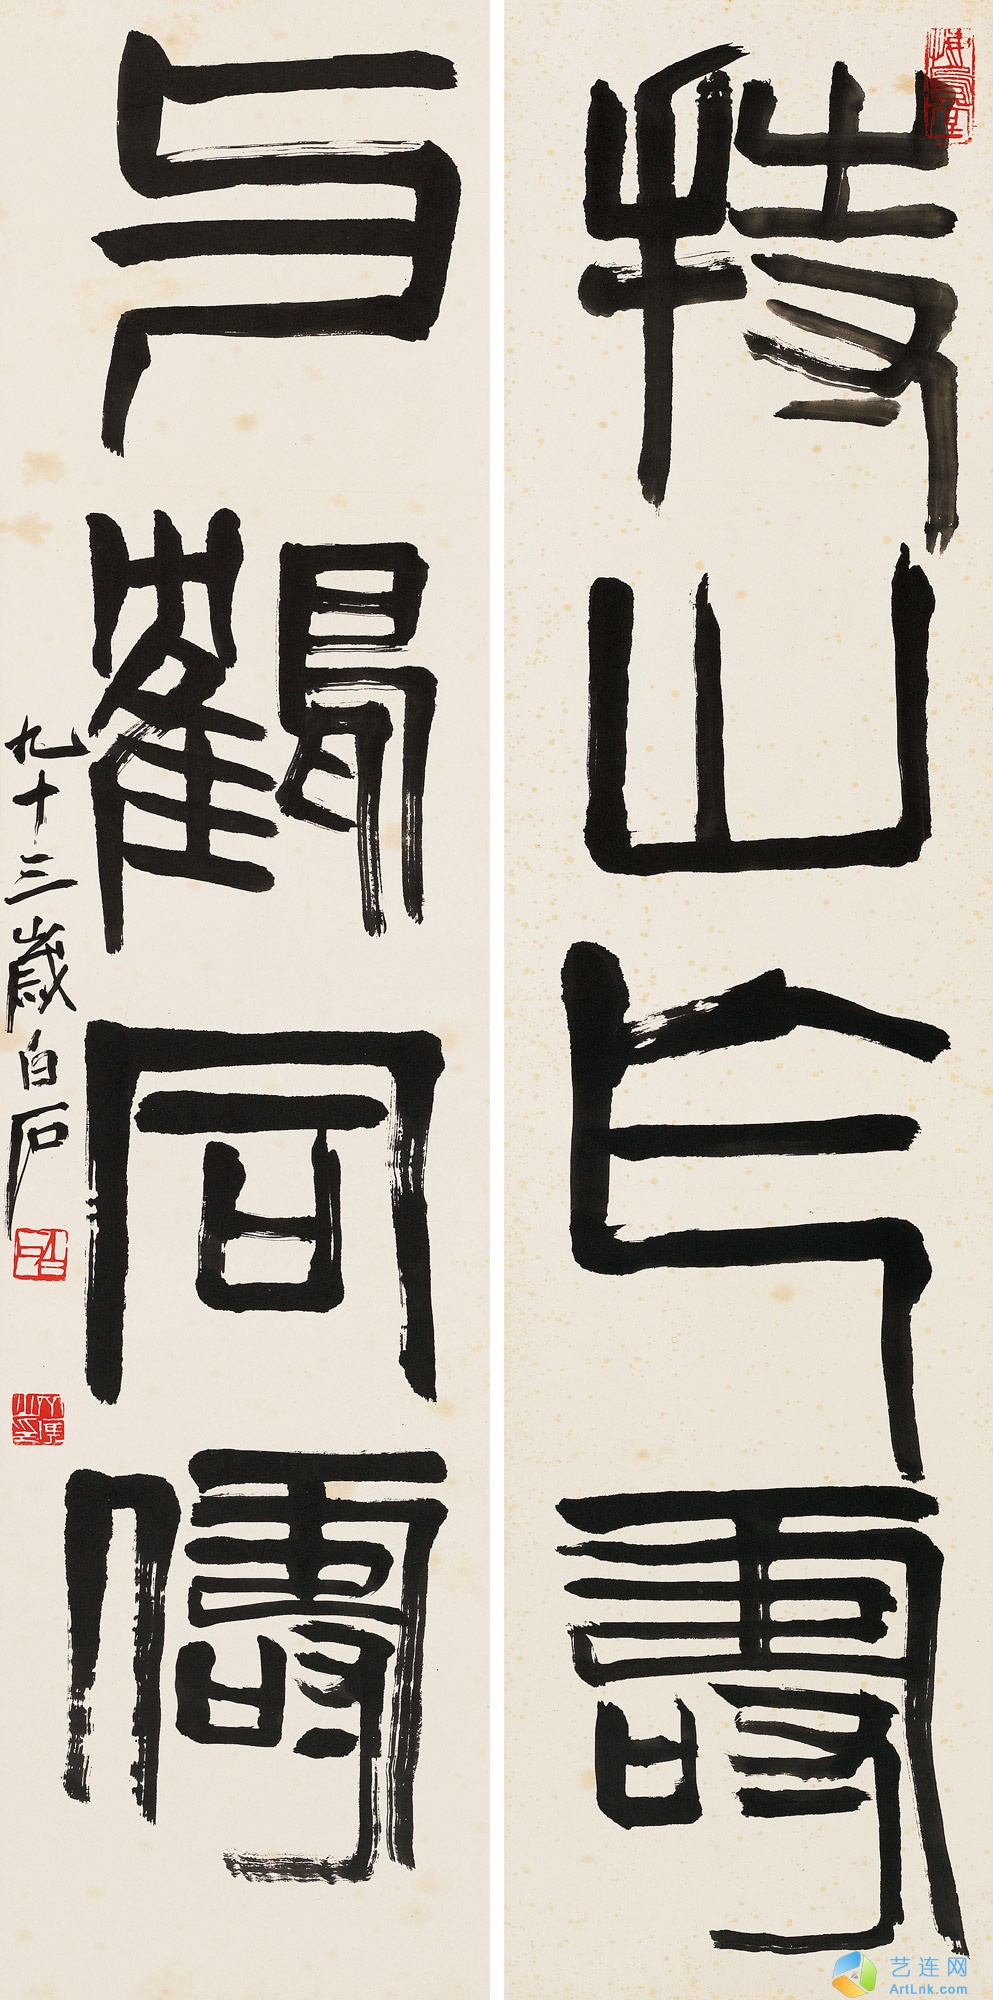 持山乍壽
与鶴同儔
九十三歲白石
白石
艺连网
ArtLnk.com